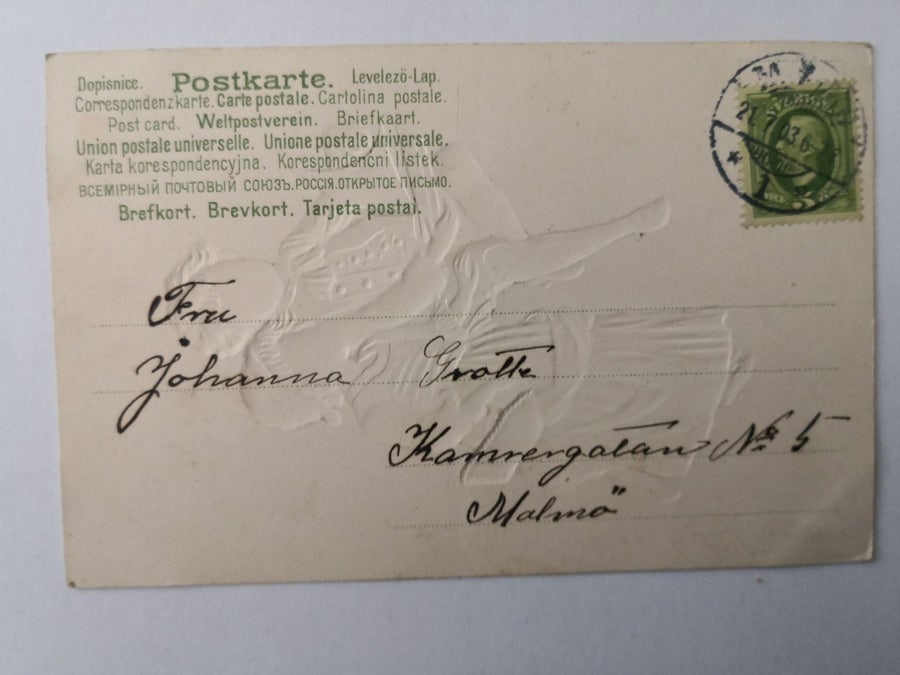 Dopisnice. Postkarte. Levelezö-Lap.
Correspondenzkarte. Carte postale. Cartolina postale.
Post card. Weltpostverein. Briefkaart.
Union postale universelle. Unione postale universale.
Karta korespondencyjna. Korespondenční listek.
ВСЕМІРНЫЙ ПОЧТОВЫЙ СОЮЗЪ. РОССІЯ. ОТКРЫТОЕ ПИСЬМО.
Brefkort. Brevkort. Tarjeta postal.
Fru
Johanna Grotte
Kamrergatan No 5
Malmö
1